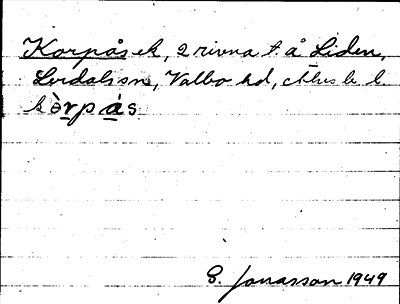 Korpåsek, 2 rivna t å Liden,
Lerdals sn, Valbo hd, Älvsb l.
kòrpås
E. Jonasson 1949